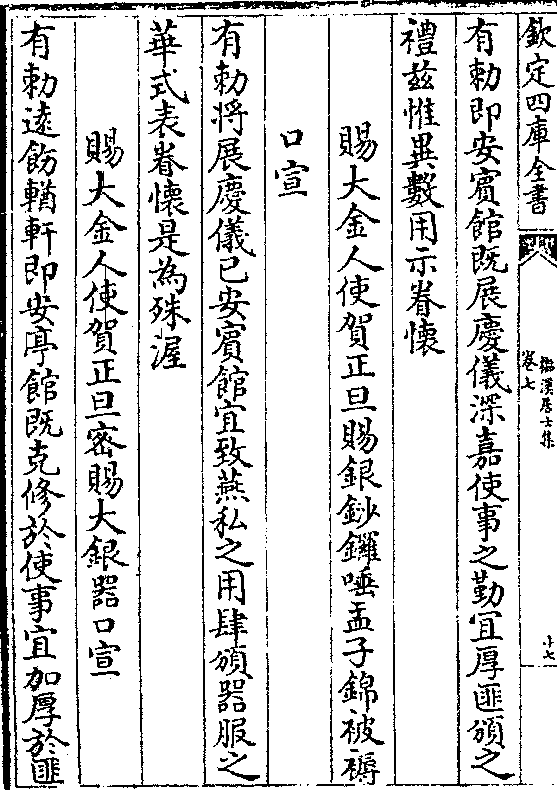 欽定四庫全書
卷七
十七
有勅即安賓館既展慶儀深嘉使事之勤宜厚匪頒之
禮兹惟異數用示眷懷
賜大金人使賀正旦賜銀鈔鑼唾盂子錦被褥
口宣
有勅將展慶儀已安賓館宜致燕私之用肆頒器服之
華式表眷懷是為殊渥
賜大金人使賀正旦密賜大銀器口宣
有勅逺飭輶軒即安亭館既克修於使事宜加厚於匪